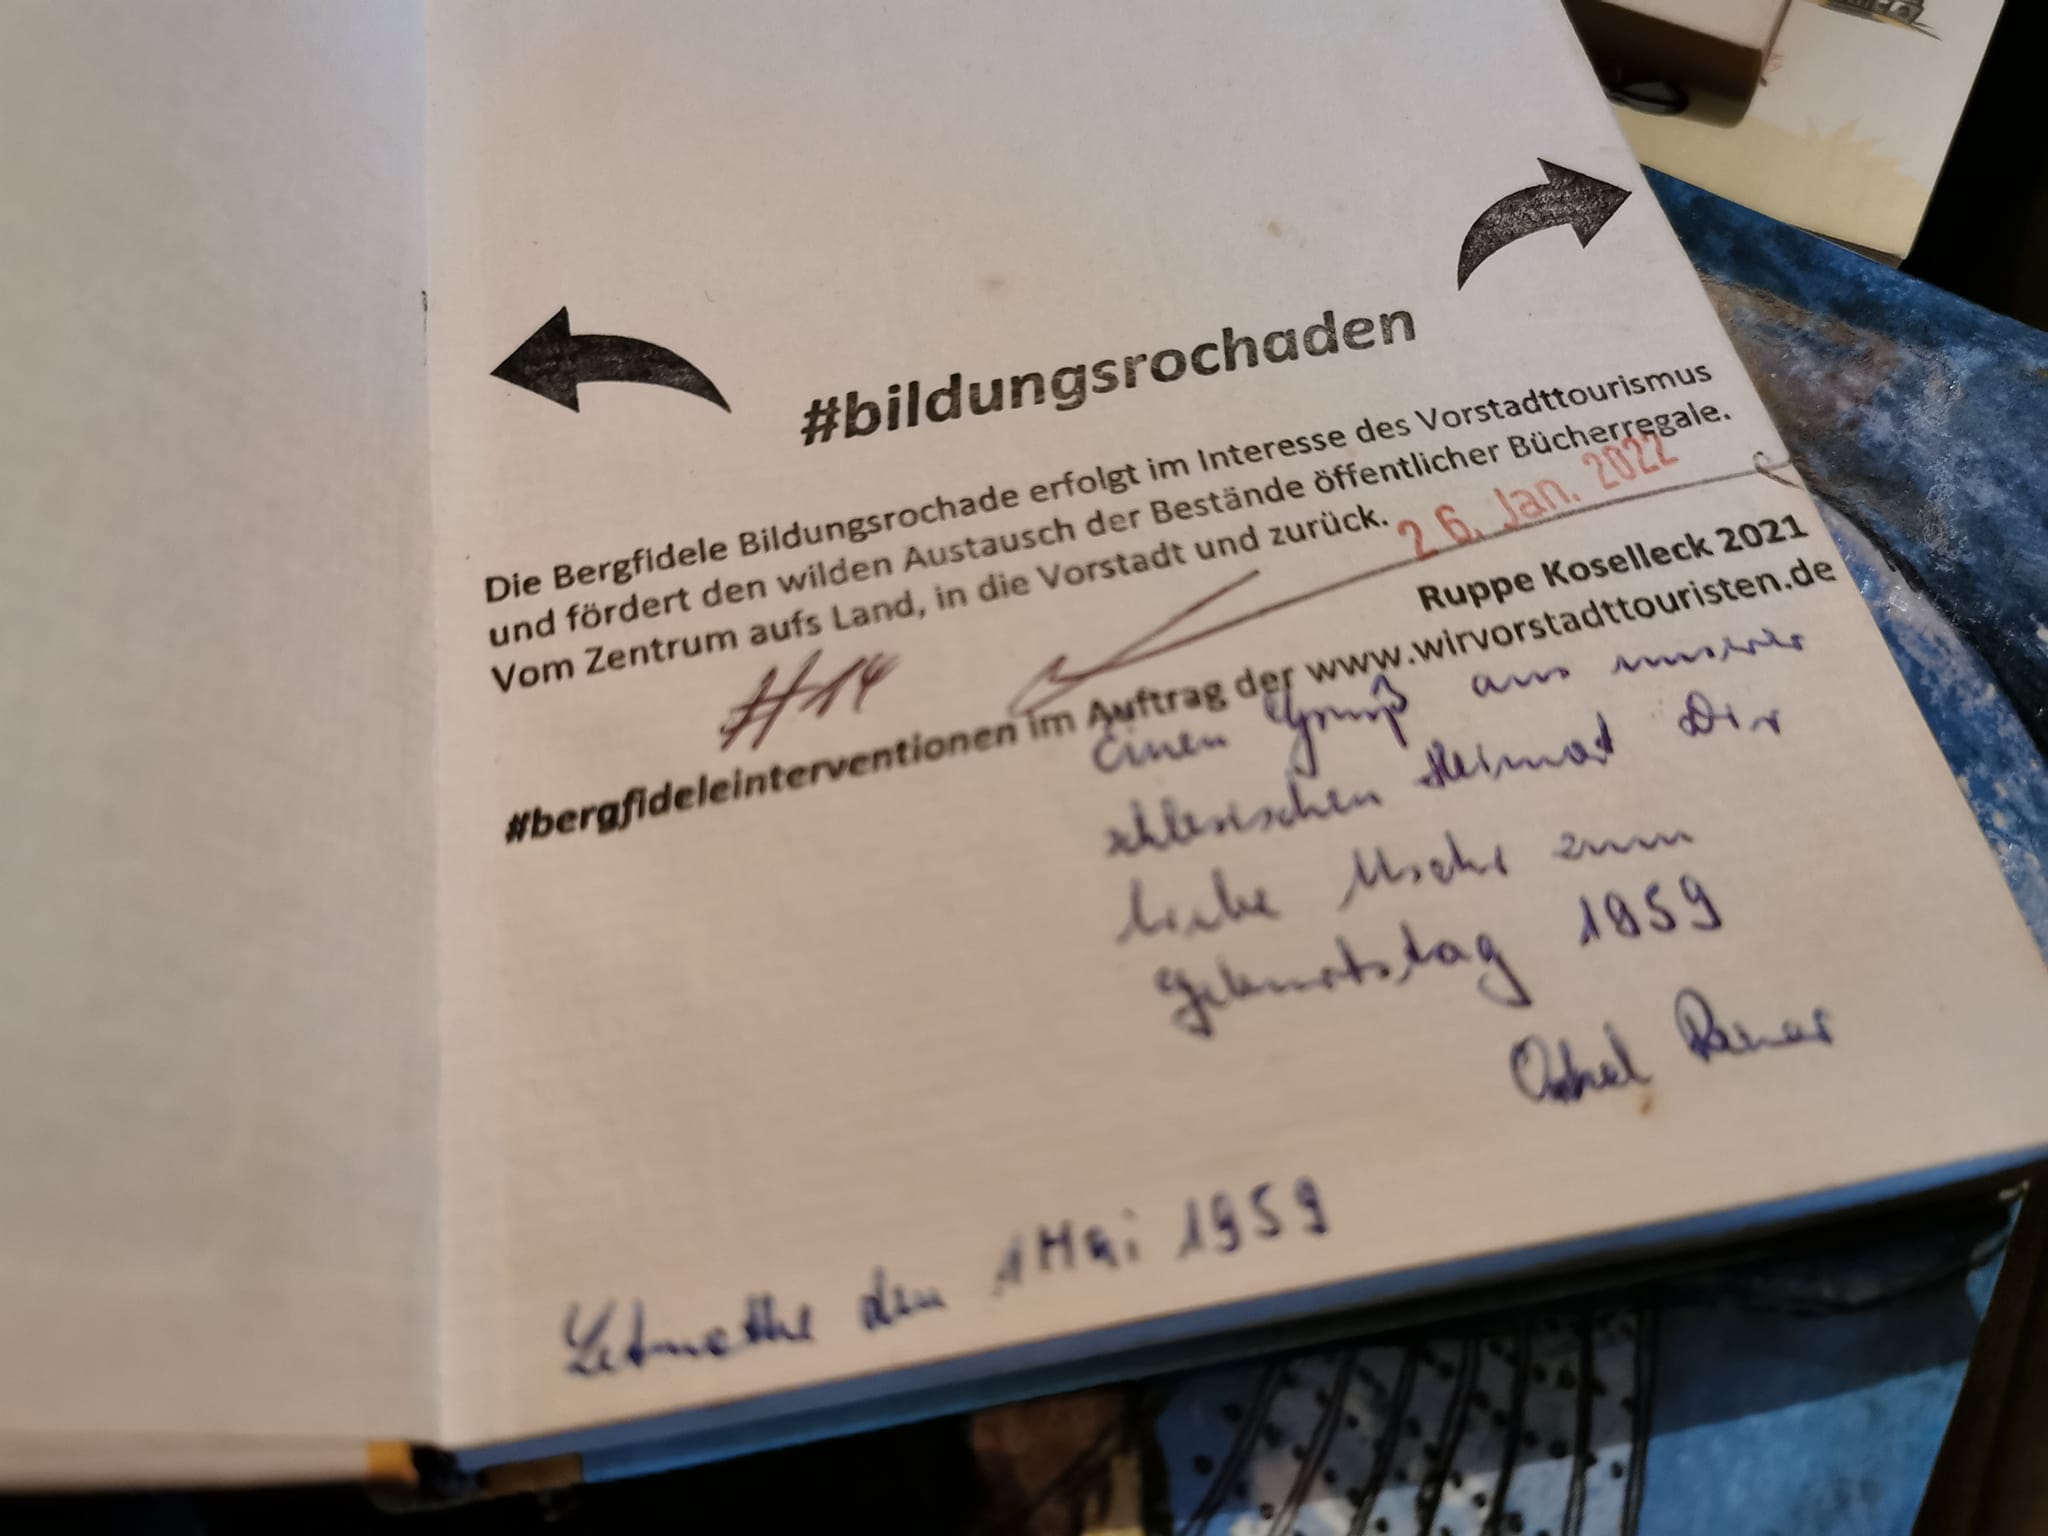 #bildungsrochaden
Die Bergfidele Bildungsrochade erfolgt im Interesse des Vorstadttourismus
und fördert den wilden Austausch der Bestände öffentlicher Bücherregale.
Vom Zentrum aufs Land, in die Vorstadt und zurück.
26. Jan. 2022
Ruppe Koselleck 2021
#14
#bergfideleinterventionen im Auftrag der www.wirvorstadttouristen.de
Einen Gruß aus unserer
schlesischen Heimat Dir
liebe zum
Geburtstag 1959
Letmathe den 1 Mai 1959